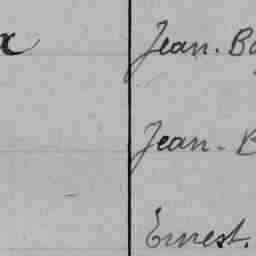 Jean. Ba
Jean. B
Ernest.